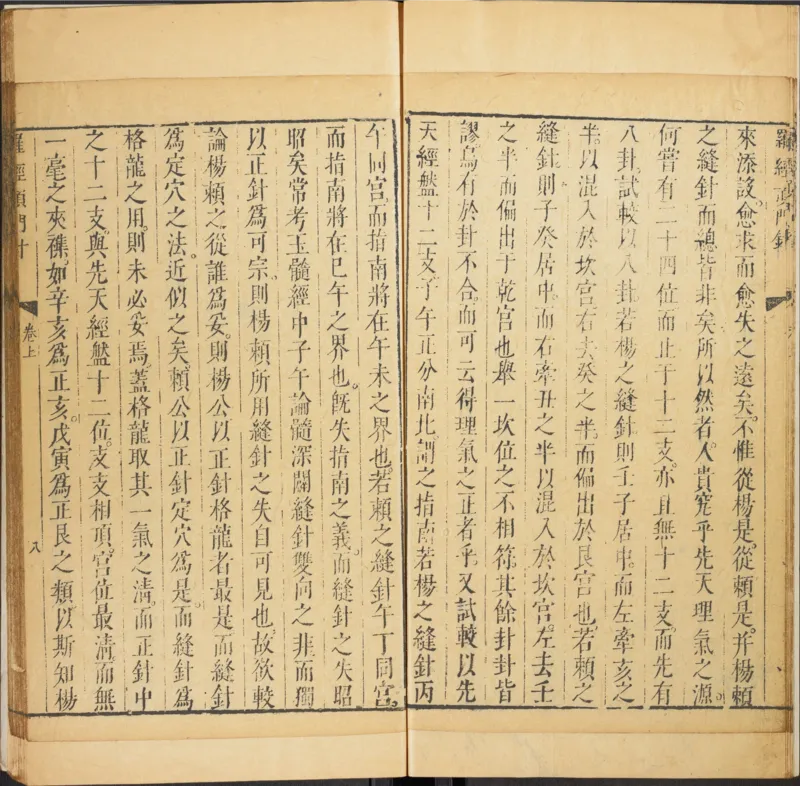 羅經頂門針
來添設愈求而愈失之遠矣不惟從楊是從賴是并楊賴
之縫針而總皆非矣所以然者人貴究乎先天理氣之源
何嘗有二十四位而止于十二支亦且無十二支而先有
八卦試較以八卦若楊之縫針則壬子居中而左牽亥之
半以混入於坎宮右去癸之半而偏出於艮宮也若賴之
縫針則子癸居中而右牽丑之半以混入於坎宮左去壬
之半而偏出于乾宮也舉一坎位之不相符其餘卦卦皆
謬烏有於卦不合而可云得理氣之正者乎又試較以先
天經盤十二支子午正分南北謂之指南若楊之縫針丙
午同宮而指南將在午未之界也若賴之縫針午丁同宮
而指南將在巳午之界也旣失指南之義而縫針之失昭
昭矣常考玉髓經中子午論髓深闢縫針雙向之非而獨
以正針爲可宗則楊賴所用縫針之失自可見也故欲較
論楊賴之從誰爲妥則楊公以正針格龍者最是而縫針
爲定穴之法近似之矣賴公以正針定穴爲是而縫針爲
格龍之用則未必妥焉蓋格龍取其一氣之淸而正針中
之十二支與先天經盤十二位支支相頂宮位最淸而無
一毫之夾襍如辛亥爲正亥戊寅爲正艮之類以斯知楊
羅經頂門針
卷上
八